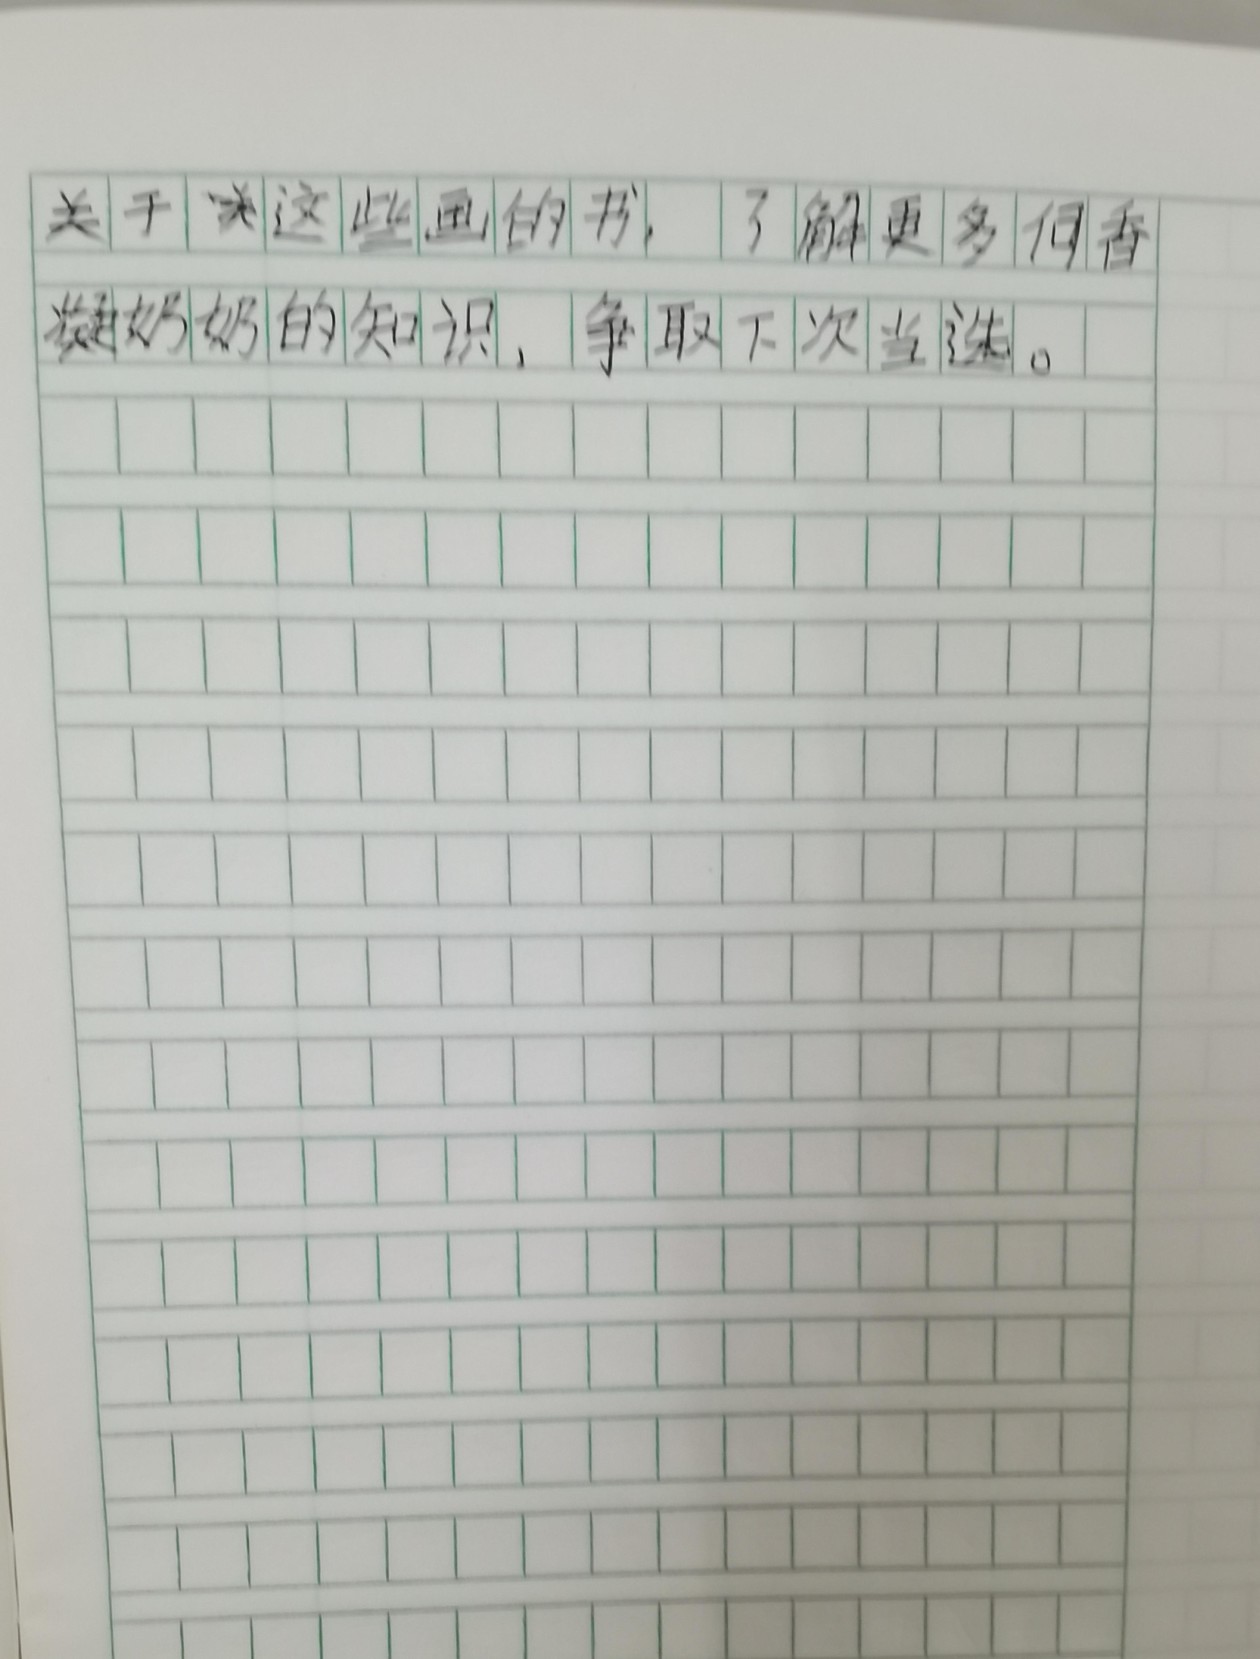 关于这些画的书，了解更多何香
凝奶奶的知识，争取下次当选。